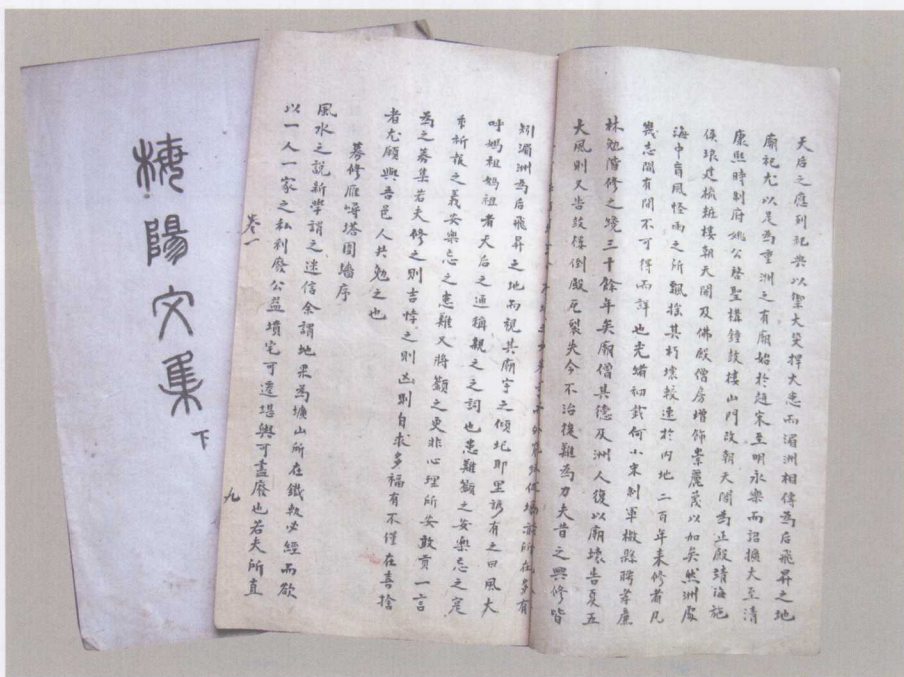 梅陽文集
下
天后之應列祀典以禦大災捍大患而湄洲相傳為后飛昇之地
廟祀尤以是為重洲之有廟始於趙宋至明永樂而詔擴大至清
康熙時制府姚公啓聖構鐘鼓樓山門改朝天閣為正殿靖海施
侯琅建梳粧樓朝天閣及佛殿僧房增飾崇麗蔑以加矣然洲處
海中盲風怪雨之所飄搖其朽壞較速於內地二百年來修者凡
幾志間有間不可得而詳也光緒初
林勉階修之境三十餘年矣廟僧其德及洲人復以廟壞告夏五
大風則又告鼓樓倒殿瓦裂失今不治復難為力夫昔之興修皆
矧湄洲為后飛昇之地而視其廟宇之傾圮耶里諺有之曰風大
呼媽祖媽祖者天后之通稱親之之詞也患難籲之安樂忘之
祈報之義安樂忘之患難又將籲之更非心理所安敢貢一言
為之募集若夫修之則吉悖之則凶則自求多福有不僅在喜捨
者尤願與吾邑人共勉之也
募修雁塔圍墻序
風水之說新學謂之迷信余謂地果為壙山所在鐵軌必經而欲
以一人一家之私利廢公益墳宅可遷堪輿可盡廢也若夫所直
卷一
九